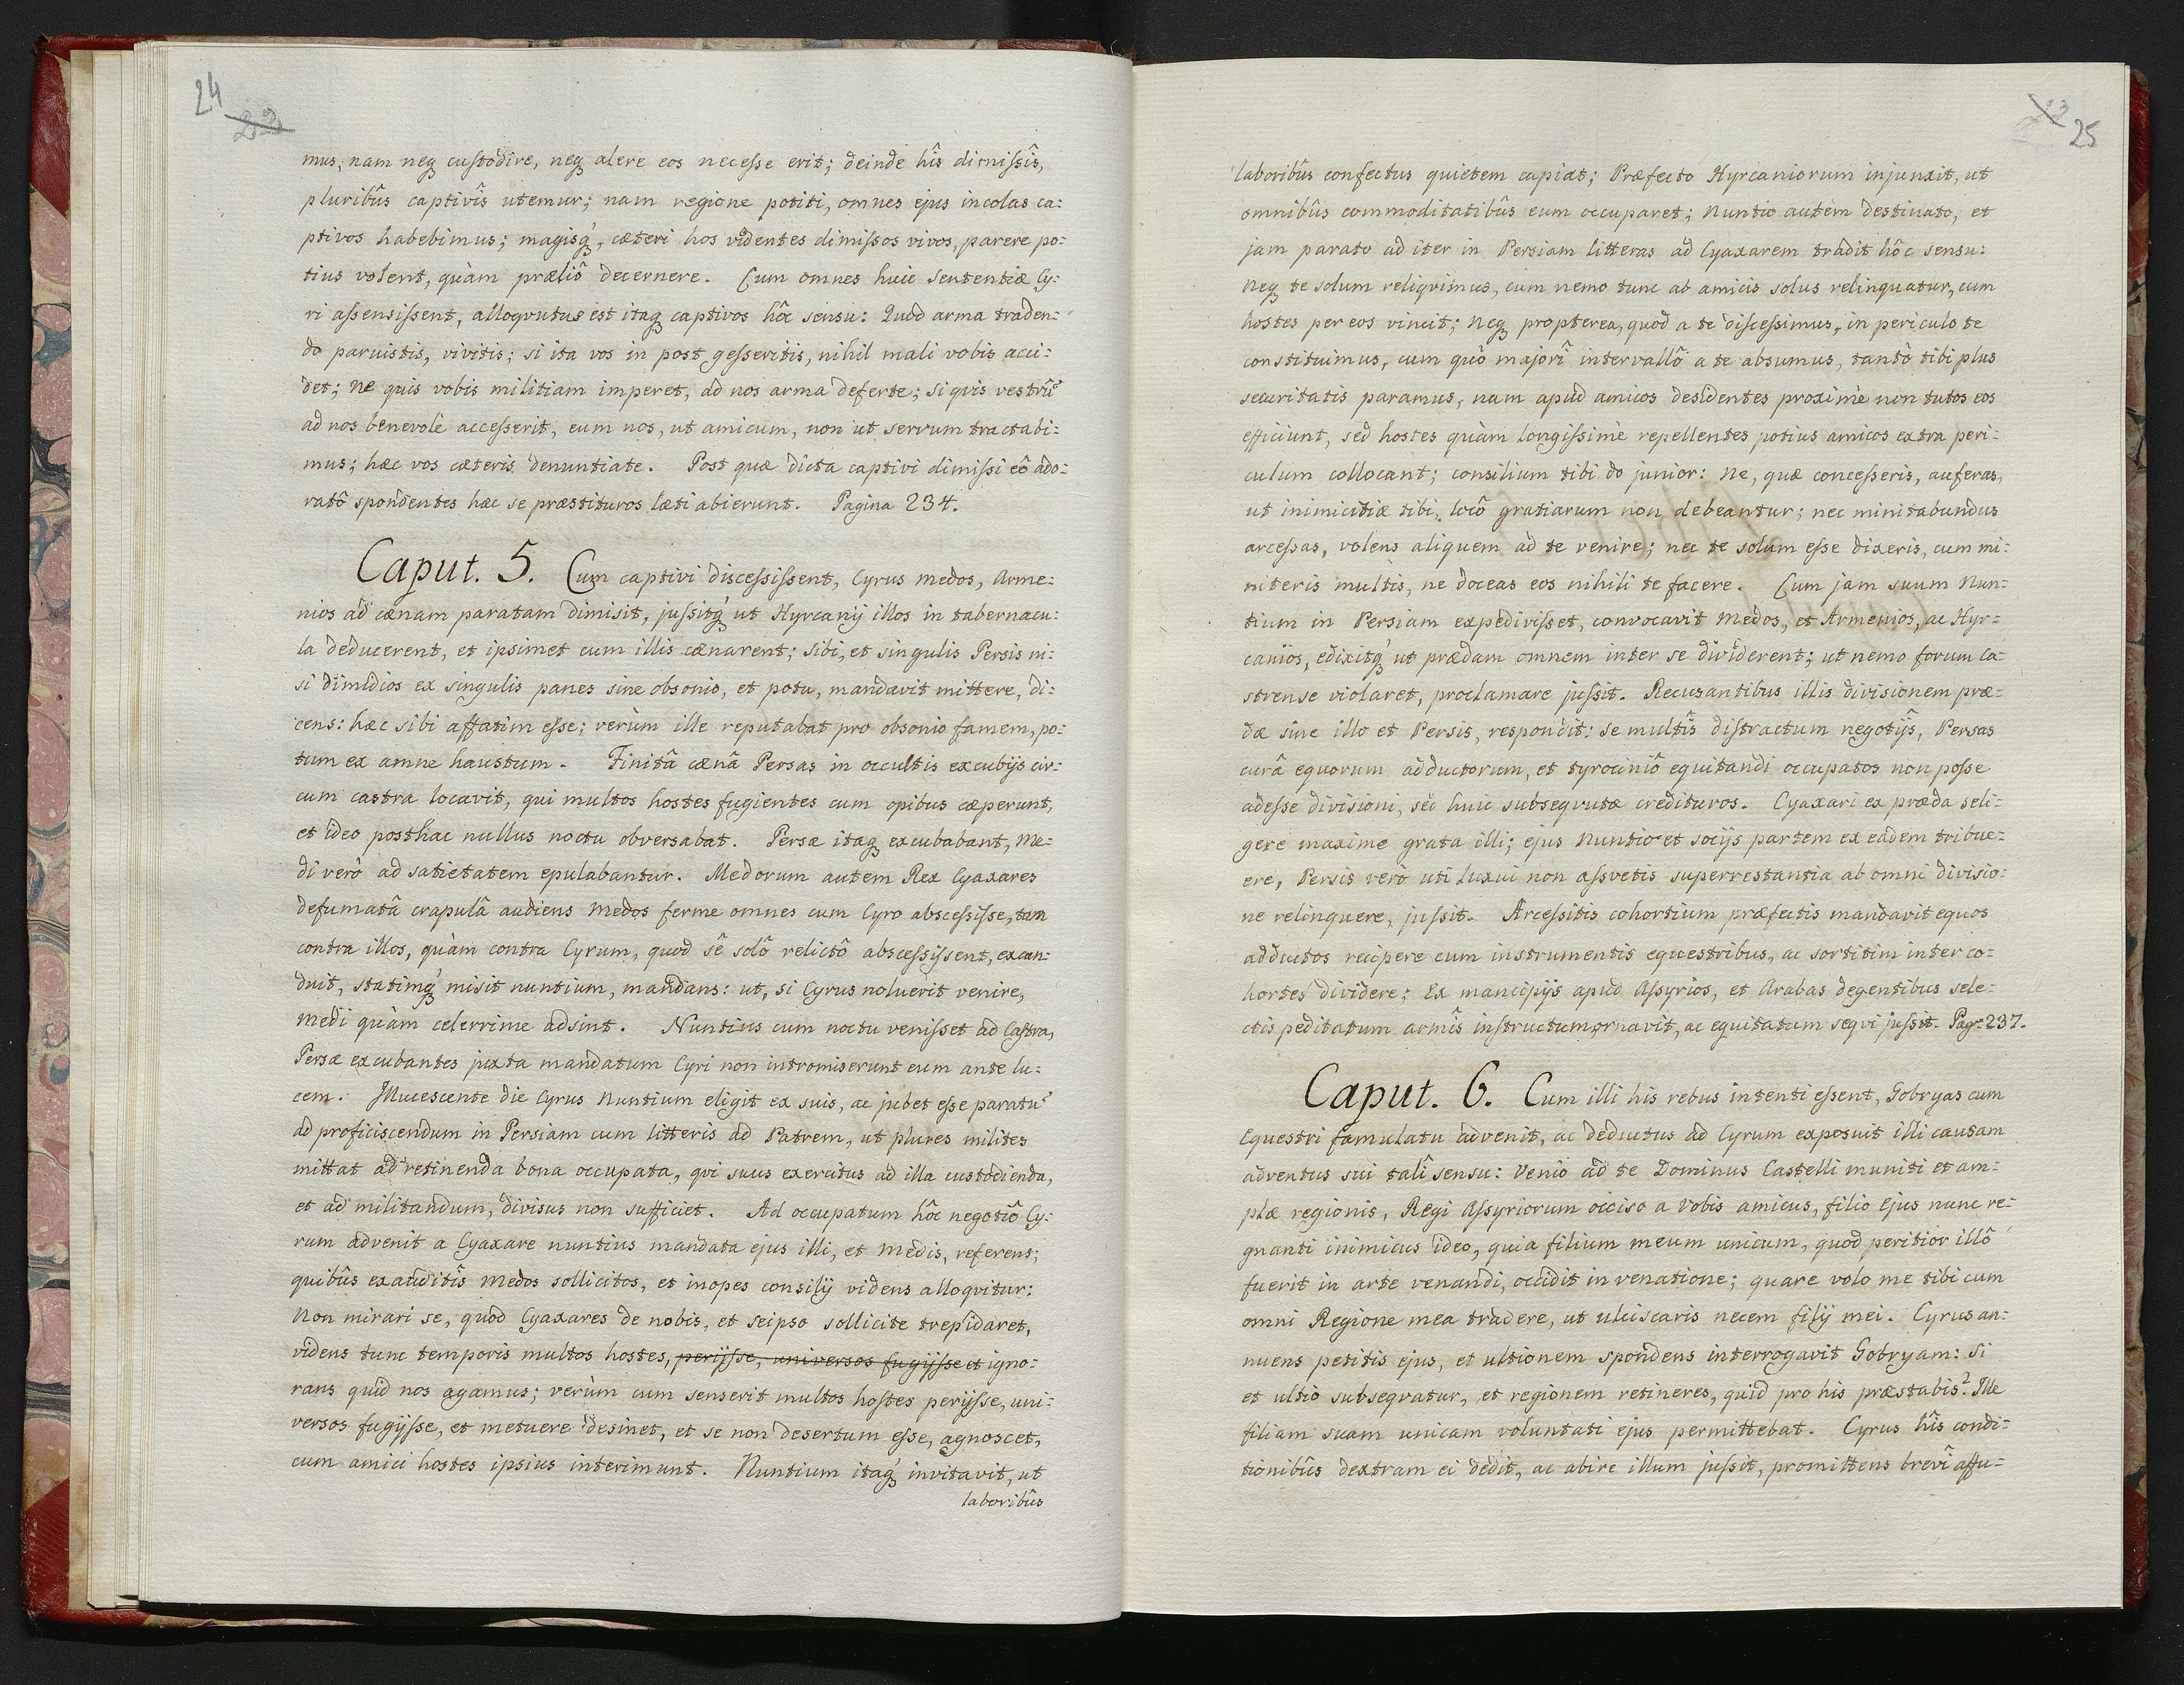 24
22
mus, nam neq₃ custodire, neq₃ alere eos necesse erit; deinde hîs dimissîs,
pluribûs captivîs utemur; nam regione potiti, omnes ejus incolas ca=
ptivos habebimus; magisq₃́, cæteri hos videntes dimissos vivos, parere po=
tius volent, quàm præliô decernere. Cum omnes huic sententiæ Cy=
ri assensissent, alloqvutus est itaq₃ captivos hôc sensu: Quod arma traden=
do paruistis, vivitis; si ita vos in post gesseritis, nihil mali vobis acci=
det; ne quis vobis militiam imperet, ad nos arma deferte; si qvis vestrũ
ad nos benevolè accesserit, eum nos, ut amicum, non ut servum tractabi=
mus; hæc vos cæteris denuntiate. Post quæ dicta captivi dimissi eô ado=
ratô spondentes hæc se præstituros læti abierunt. Pagina 234.
Caput. 5. Cum captivi discessissent, Cyrus medos, Arme=
nios ad cænam paratam dimisit, jussitq₃́ ut Hyrcanij illos in tabernacu=
la deducerent, et ipsimet cum illis cænarent; sibi, et singulis Persis ni=
si dimidios ex singulis panes sine obsonio, et potu, mandavit mittere, di=
cens: hæc sibi affatim esse; verùm ille reputabat pro obsonio famem, po=
tum ex amne haustum. Finitâ cænâ Persas in occultis excubijs cir=
cum castra locavit, qui multos hostes fugientes cum opibus cæperunt,
et ideo posthac nullus noctu obversabat. Persæ itaq₃ excubabant, Me=
di verò ad satietatem epulabantur. Medorum autem Rex Cyaxares
defumatâ crapulâ audiens medos ferme omnes cum Cyro abscessisse, tam
contra illos, quàm contra Cyrum, quod sê solô relictô abscessissent, excan=
duit, statimq₃́ misit nuntium, mandans: ut, si Cyrus noluerit venire,
medi quàm celerrime adsint. Nuntius cum noctu venisset ad Castra,
Persæ excubantes juxta mandatum Cyri non intromiserunt eum ante lu=
cem. Illucescente die Cyrus Nuntium eligit ex suis, ac jubet esse paratũ
ad proficiscendum in Persiam cum litteris ad Patrem, ut plures milites
mittat ad retinenda bona occupata, qvi suus exercitus ad illa custodienda,
et ad militandum, divisus non sufficiet. Ad occupatum hôc negotiô Cy=
rum advenit a Cyaxare nuntius mandata ejus illi, et medis, referens;
quibûs exauditîs medos sollicitos, et inopes consilij videns alloqvitur:
Non mirari se, quod Cyaxares de nobis, et seipso sollicite trepidaret,
videns tunc temporis multos hostes, perijsse, universos fugijsse et igno=
rans quid nos agamus; verùm cum senserit multos hostes perijsse, uni=
versos fugijsse, et metuere desinet, et se non desertum esse, agnoscet,
cum amici hostes ipsius interimunt. Nuntium itaq₃́ invitavit, ut
laboribûs
25
laboribûs confectus quietem capiat; Præfecto Hyrcaniorum injunxit, ut
omnibûs commoditatibûs eum occuparet; Nuntio autem destinato, et
jam parato ad iter in Persiam litteras ad Cyaxarem tradit hôc sensu:
Neq₃ te solum reliqvimus, cum nemo tunc ab amicis solus relinquatur, cum
hostes per eos vincit; Neq₃ propterea, quod a te discessimus, in periculo te
constituimus, cum quò majorî intervallô a te absumus, tantò tibi plus
securitatis paramus, nam apud amicos desidentes proximè non tutos eos
efficiunt, sed hostes quàm longissimè repellentes potius amicos extra peri=
culum collocant; consilium tibi do junior: Ne, quæ concesseris, auferas,
ut inimicitiæ tibi, locô gratiarum non debeantur; nec minitabundus
arcessas, volens aliquem ad te venire; nec te solum esse dixeris, cum mi=
niteris multis, ne doceas eos nihili te facere. Cum jam suum Nun=
tium in Persiam expedivisset, convocavit medos, et Armenios, ac Hyr=
canios, edixitq₃́ ut prædam omnem inter se dividerent; ut nemo forum Ca=
strense violaret, proclamare jussit. Recusantibus illis divisionem præ=
dæ sine illo et Persis, respondit: se multîs distractum negotijs, Persas
curâ equorum adductorum, et tyrociniô equitandi occupatos non posse
adesse divisioni, sed huic subseqvutæ credituros. Cyaxari ex præda seli=
gere maxime grata illi; ejus Nuntio et socijs partem ex eadem tribue=
ere, Persis verò uti luxui non assvetis superrestantia ab omni divisio=
ne relinquere, jussit. Arcessitis cohortium præfectis mandavit equos
adductos recipere cum instrumentis equestribus, ac sortitim inter co=
hortes dividere; Ex mancipijs apud Assyrios, et Arabas degentibus sele=
ctis peditatum armîs instructum ornavit, ac equitatum seqvi jussit. Pag: 237.
Caput. 6. Cum illi his rebus intenti essent, Gobryas cum
Equestri famulatu advenit, ac deductus ad Cyrum exposuit illi causam
adventus sui talî sensu: Venio ad te Dominus Castelli muniti et am=
plæ regionis, Regi Assyriorum occiso a Vobis amicus, filio Ejus nunc re=
gnanti inimicus ideo, quia filium meum unicum, quod peritior illô
fuerit in arte venandi, occidit in venatione; quare volo me tibi cum
omni Regione mea tradere, ut ulciscaris necem filij mei. Cyrus an=
nuens petitis ejus, et ultionem spondens interrogavit Gobryam: Si
et ultio subseqvatur, et regionem retineres, quid pro his præstabis? Ille
filiam suam unicam voluntati ejus permittebat. Cyrus hîs condi=
tionibûs dextram ei dedit, ac abire illum jussit, promittens brevî affu=